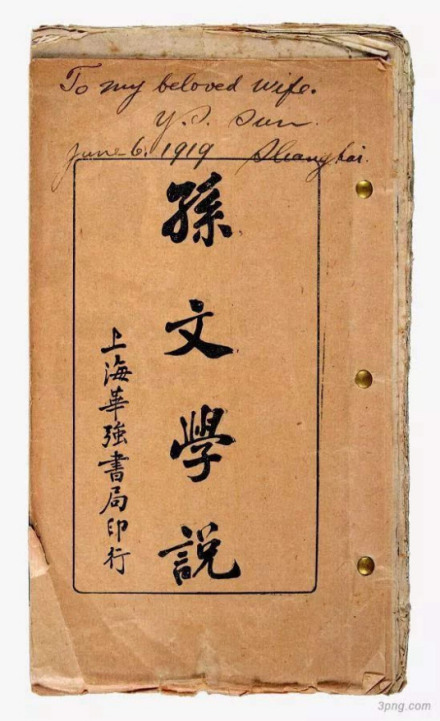 To my beloved wife.
Y. S. Sun.
June 6. 1919 Shanghai.
孫文學説
上海華強書局印行
3png.com